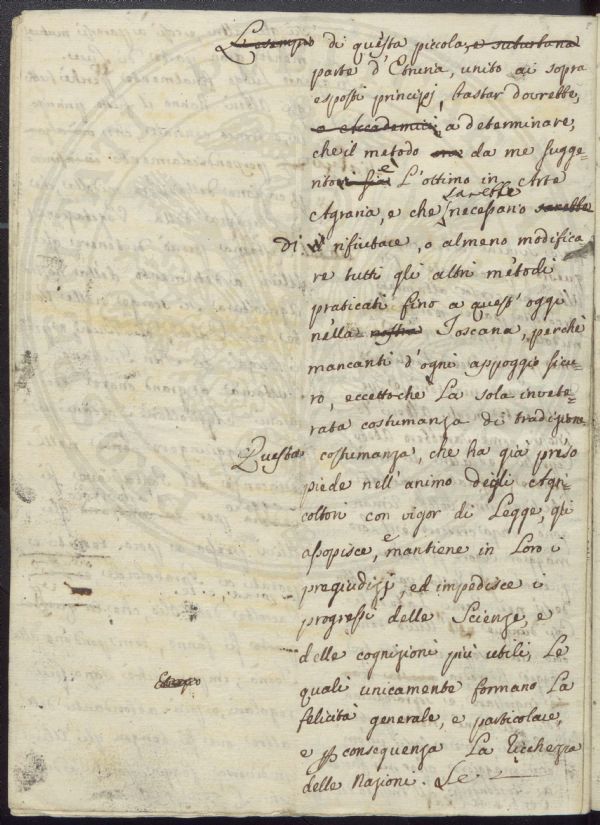 L'esempio di questa piccola, e suburbana
parte d'Etruria, unito ai sopra
esposti principj, bastar dovrebbe,
o Accademici, a determinare,
che il metodo da me sugge-
rito si sia è L'ottimo in Arte
Agraria, e che sarebbe necessario sarebbe
di rifiutare, o almeno modifica
re tutti gli altri metodi
praticati fino a quest'oggi
nella nostra Toscana, perchè
mancanti d'ogni appoggio sicu-
ro, eccettochè La sola invete-
rata costumanza di tradizione
Questa costumanza, che ha già preso
piede nell'animo degli Agri-
coltori con vigor di Legge, gli
assopisce, e mantiene in Loro i
pregiudizj, ed impedisce i
progressi delle Scienze, e
delle cognizioni più utili, Le
quali unicamente formano La
felicità generale, e particolare,
e p consequenza La Ricchezza
delle Nazioni. Le